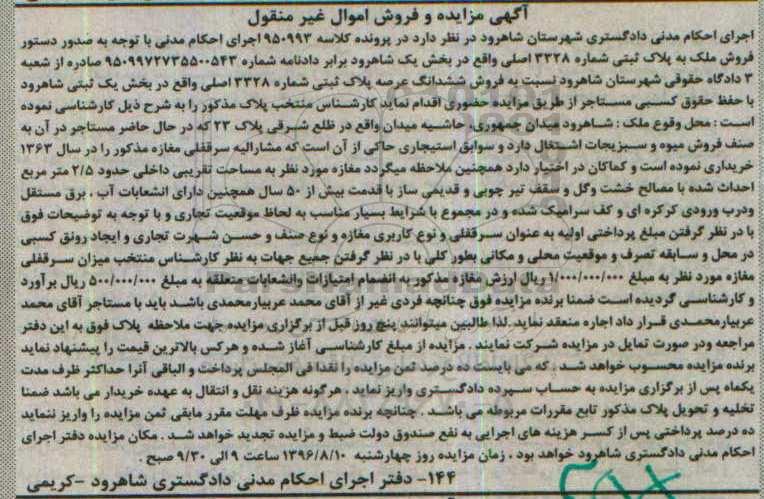 آگهی مزایده و فروش اموال غیر منقول
اجرای احکام مدنی دادگستری شهرستان شاهرود در نظر دارد در پرونده کلاسه ۹۵۰۹۹۳ اجرای احکام مدنی با توجه به صدور دستور
فروش ملک به پلاک ثبتی شماره ۳۳۲۸ اصلی واقع در بخش یک شاهرود برابر دادنامه شماره ۹۵۰۹۹۷۲۷۳۵۵۰۰۵۴۳ صادره از شعبه
۳ دادگاه حقوقی شهرستان شاهرود نسبت به فروش ششدانگ عرصه پلاک ثبتی شماره ۳۳۲۸ اصلی واقع در بخش یک ثبتی شاهرود
با حفظ حقوق کسبی مستاجر از طریق مزایده حضوری اقدام نماید کارشناس منتخب پلاک مذکور را به شرح ذیل کارشناسی نموده
است : محل وقوع ملک : شاهرود میدان جمهوری حاشیه میدان واقع در ظلع شرقی پلاک ۲۳ که در حال حاضر مستاجر در آن به
صنف فروش میوه و سبزیجات اشتغال دارد و سوابق استیجاری حاکی از آن است که مشارالیه سرقفلی مغازه مذکور را در سال ۱۳۶۳
خریداری نموده است و کماکان در اختیار دارد همچنین ملاحظه میگردد مغازه مورد نظر به مساحت تقریبی داخلی حدود ۲/۵ متر مربع
احداث شده با مصالح خشت وگل و سقف تیر چوبی و قدیمی ساز با قدمت بیش از ۵۰ سال همچنین دارای انشعابات آب ، برق مستقل
ودرب ورودی کرکره ای و کف سرامیک شده و در مجموع با شرایط بسیار مناسب به لحاظ موقعیت تجاری و با توجه به توضیحات فوق
با در نظر گرفتن مبلغ پرداختی اولیه به عنوان سرقفلی و نوع کاربری مغازه و نوع صنف و حسن شهرت تجاری و ایجاد رونق کسبی
در محل و سابقه تصرف و موقعیت محلی و مکانی بطور کلی با در نظر گرفتن جمیع جهات به نظر کارشناس منتخب میزان سرقفلی
مغازه مورد نظر به مبلغ ۱/۰۰۰/۰۰۰/۰۰۰ ریال ارزش مغازه مذکور به انضمام امتیازات وانشعابات متعلقه به مبلغ ۵۰۰/۰۰۰/۰۰۰ ریال برآورد
و کارشناسی گردیده است ضمنا برنده مزایده فوق چنانچه فردی غیر از آقای محمد عربیارمحمدی باشد باید با مستاجر آقای محمد
عربیارمحمدی قرار داد اجاره منعقد نماید.لذا طالبین میتوانند پنج روز قبل از برگزاری مزایده جهت ملاحظه پلاک فوق به این دفتر
مراجعه ودر صورت تمایل در مزایده شرکت نمایند . مزایده از مبلغ کارشناسی آغاز شده و هرکس بالاترین قیمت را پیشنهاد نماید
برنده مزایده محسوب خواهد شد . که می بایست ده درصد ثمن مزایده را نقدا فی المجلس پرداخت و الباقی آنرا حداکثر ظرف مدت
یکماه پس از برگزاری مزایده به حساب سپرده دادگستری واریز نماید ، هرگونه هزینه نقل و انتقال به عهده خریدار می باشد ضمنا
تخلیه و تحویل پلاک مذکور تابع مقررات مربوطه می باشد . چنانچه برنده مزایده ظرف مهلت مقرر مابقی ثمن مزایده را واریز ننماید
ده درصد پرداختی پس از کسر هزینه های اجرایی به نفع صندوق دولت ضبط و مزایده تجدید خواهد شد . مکان مزایده دفتر اجرای
احکام مدنی دادگستری شاهرود خواهد بود . زمان مزایده روز چهارشنبه ۱۳۹۶/۸/۱۰ ساعت ۹ الی ۹/۳۰ صبح .
۱۴۴- دفتر اجرای احکام مدنی دادگستری شاهرود -کریمی